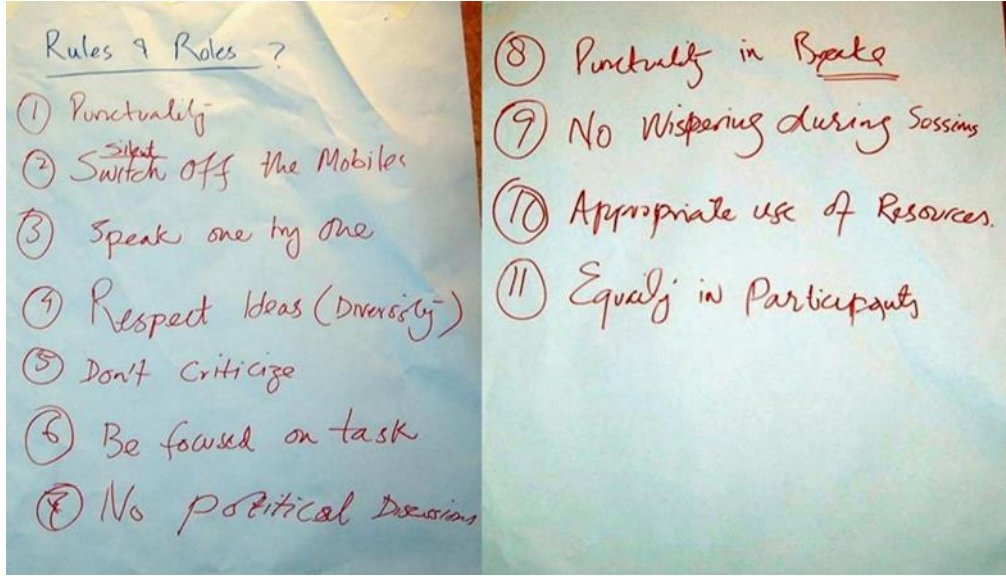 Rules & Roles ?
① Punctuality
Silent
② Switch off the Mobiles
③ Speak one by one
④ Respect Ideas (Diversity)
⑤ Don't Criticize
⑥ Be focused on task
⑦ No political Discussions
⑧ Punctuality in Breaks
⑨ No Wispering during Sessions
⑩ Appropriate use of Resources.
⑪ Equaily in Participants